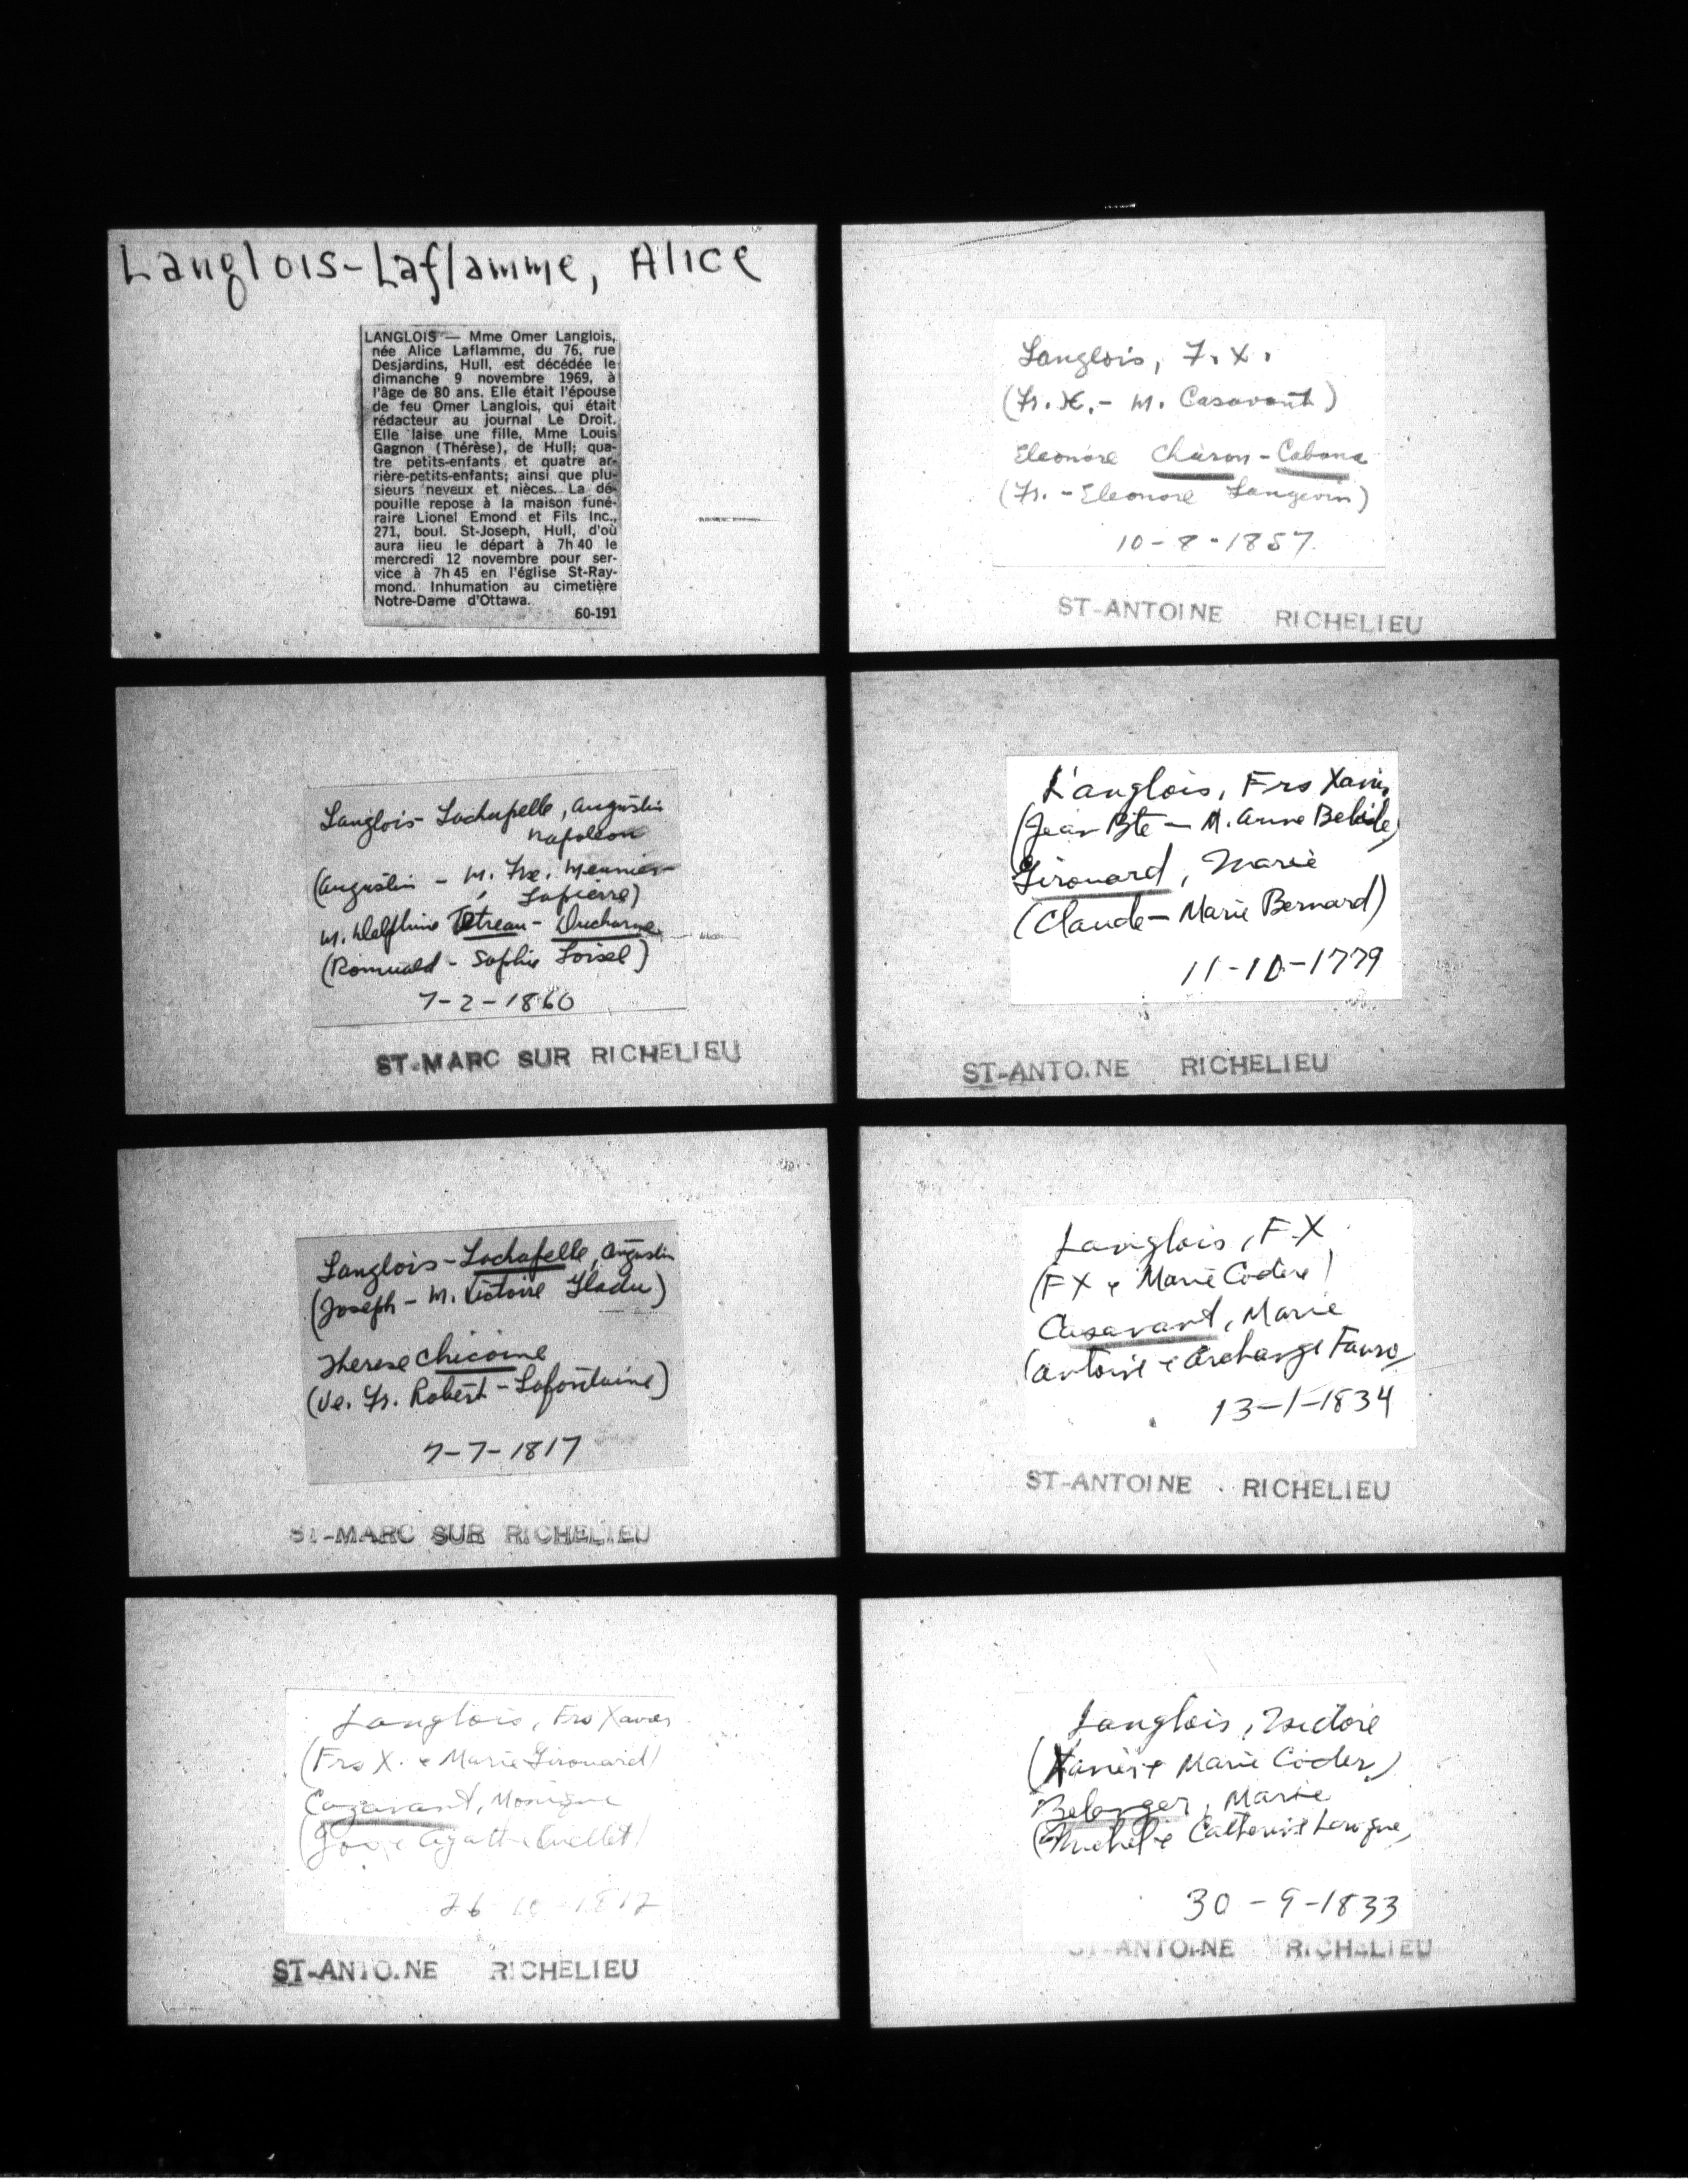 Langlois-Laflamme, Alice
LANGLOIS — Mme Omer Langlois,
née Alice Laflamme, du 76, rue
Desjardins, Hull, est décédée le
dimanche 9 novembre 1969, à
l'âge de 80 ans. Elle était l'épouse
de feu Omer Langlois, qui était
rédacteur au journal Le Droit.
Elle laise une fille, Mme Louis
Gagnon (Thérèse), de Hull; qua-
tre petits-enfants et quatre ar-
rière-petits-enfants; ainsi que plu-
sieurs neveux et nièces. La dé-
pouille repose à la maison funé-
raire Lionel Emond et Fils Inc.,
271, boul. St-Joseph, Hull, d'où
aura lieu le départ à 7h 40 le
mercredi 12 novembre pour ser-
vice à 7h 45 en l'église St-Ray-
mond. Inhumation au cimetière
Notre-Dame d'Ottawa.
60-191
Langlois, F. X.
(Fr. X. - M. Casavant)
Eleonore Charon - Cabana
(Fr. - Eleonore Langevin)
10-8-1857
ST-ANTOINE RICHELIEU
Langlois-Lachapelle, Augustin
Napoléon
(Augustin - M. Fse. Meunier-
Lapierre)
M. Delphine Tétreau - Ducharme
(Romuald - Sophie Loisel)
7-2-1860
ST-MARC SUR RICHELIEU
L'anglois, Frs Xavier
(Jean Bte - M. Anne Belisle)
Girouard, Marie
(Claude - Marie Bernard)
11-10-1779
ST-ANTOINE RICHELIEU
Langlois-Lachapelle, Augustin
(Joseph - M. Victoire Gladu)
Therese Chicoine
(Ve. Fr. Robert-Lafontaine)
7-7-1817
ST-MARC SUR RICHELIEU
Langlois, F.X
(FX & Marie Codere)
Casavant, Marie
(Antoine & Archange Favro)
13-1-1834
ST-ANTOINE RICHELIEU
Langlois, Frs Xavier
(Frs X. & Marie Girouard)
Cazavant, Monique
(Jos & Agathe Ouellet)
26-10-1812
ST-ANTOINE RICHELIEU
Langlois, Isidore
(Xavier & Marie Coder)
Belanger, Marie
(Michel & Catherine Lavigne)
30-9-1833
ST-ANTOINE RICHELIEU